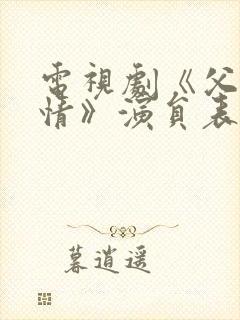 電視劇《父
情》演員表
暮逍遥